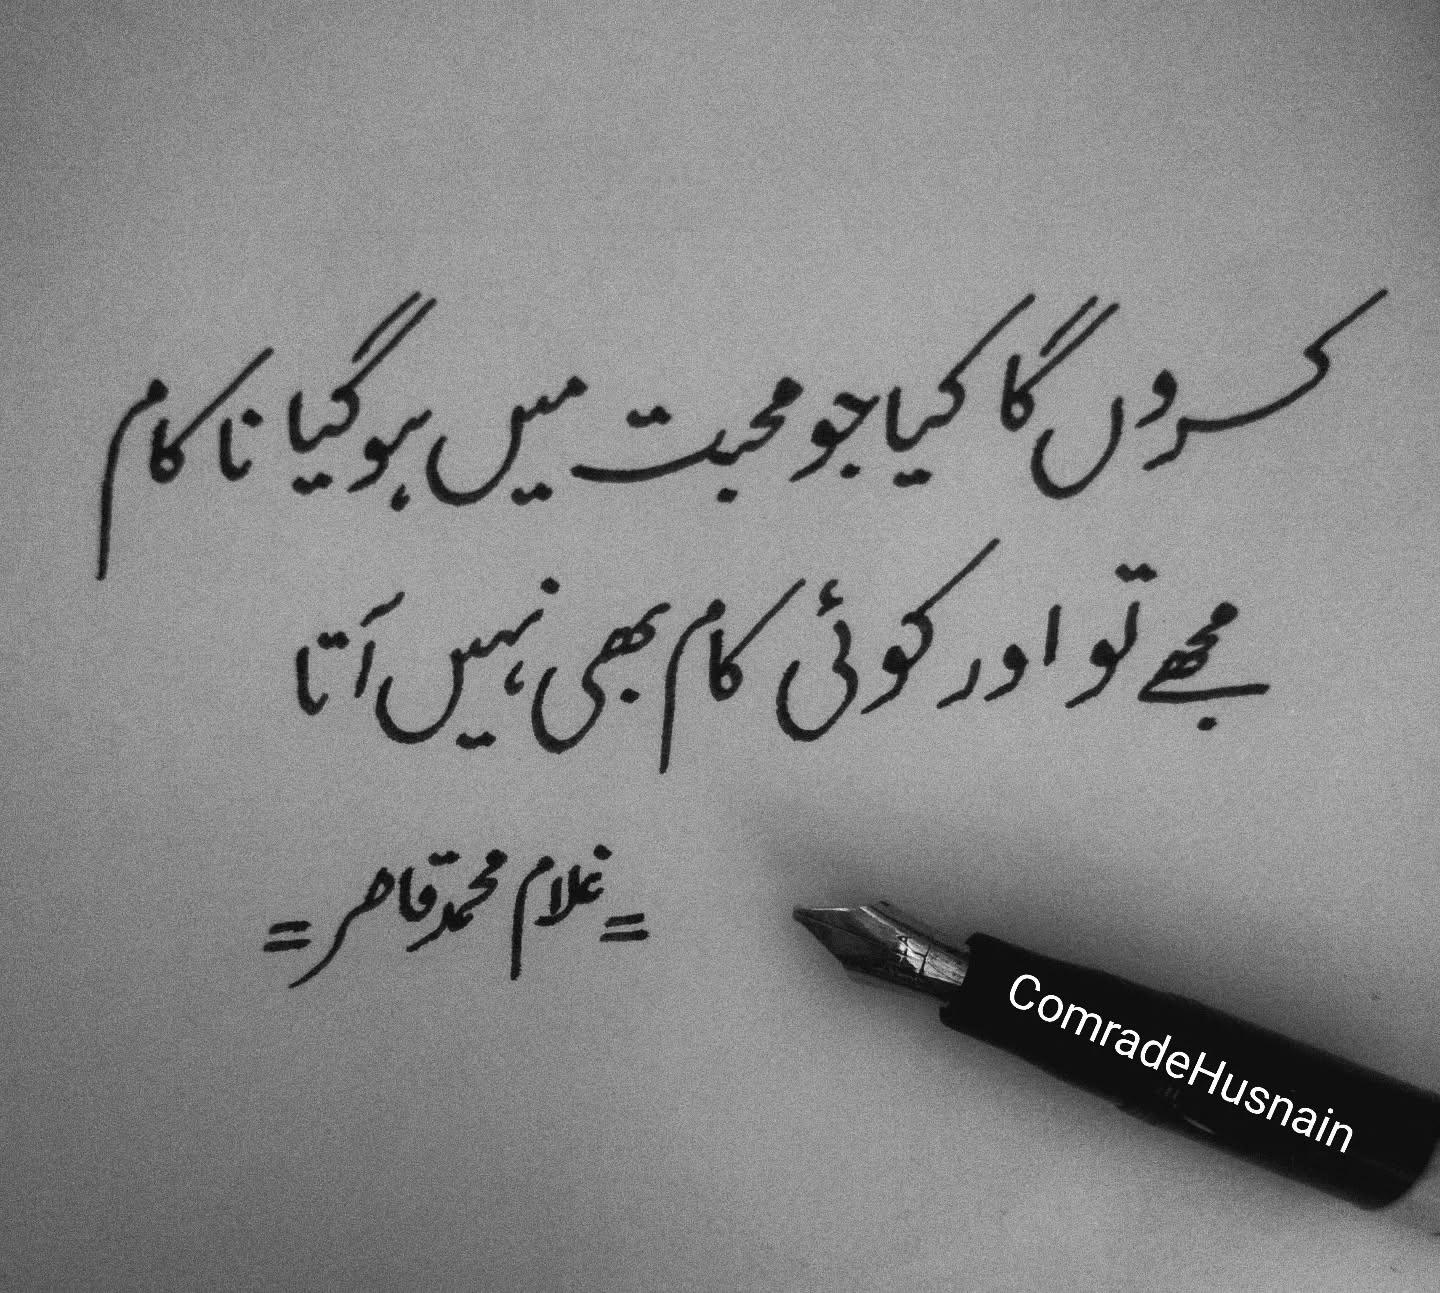 کروں گا کیا جو محبت میں ہو گیا ناکام
مجھے تو اور کوئی کام بھی نہیں آتا
= غلام محمد قاصر =
ComradeHusnain